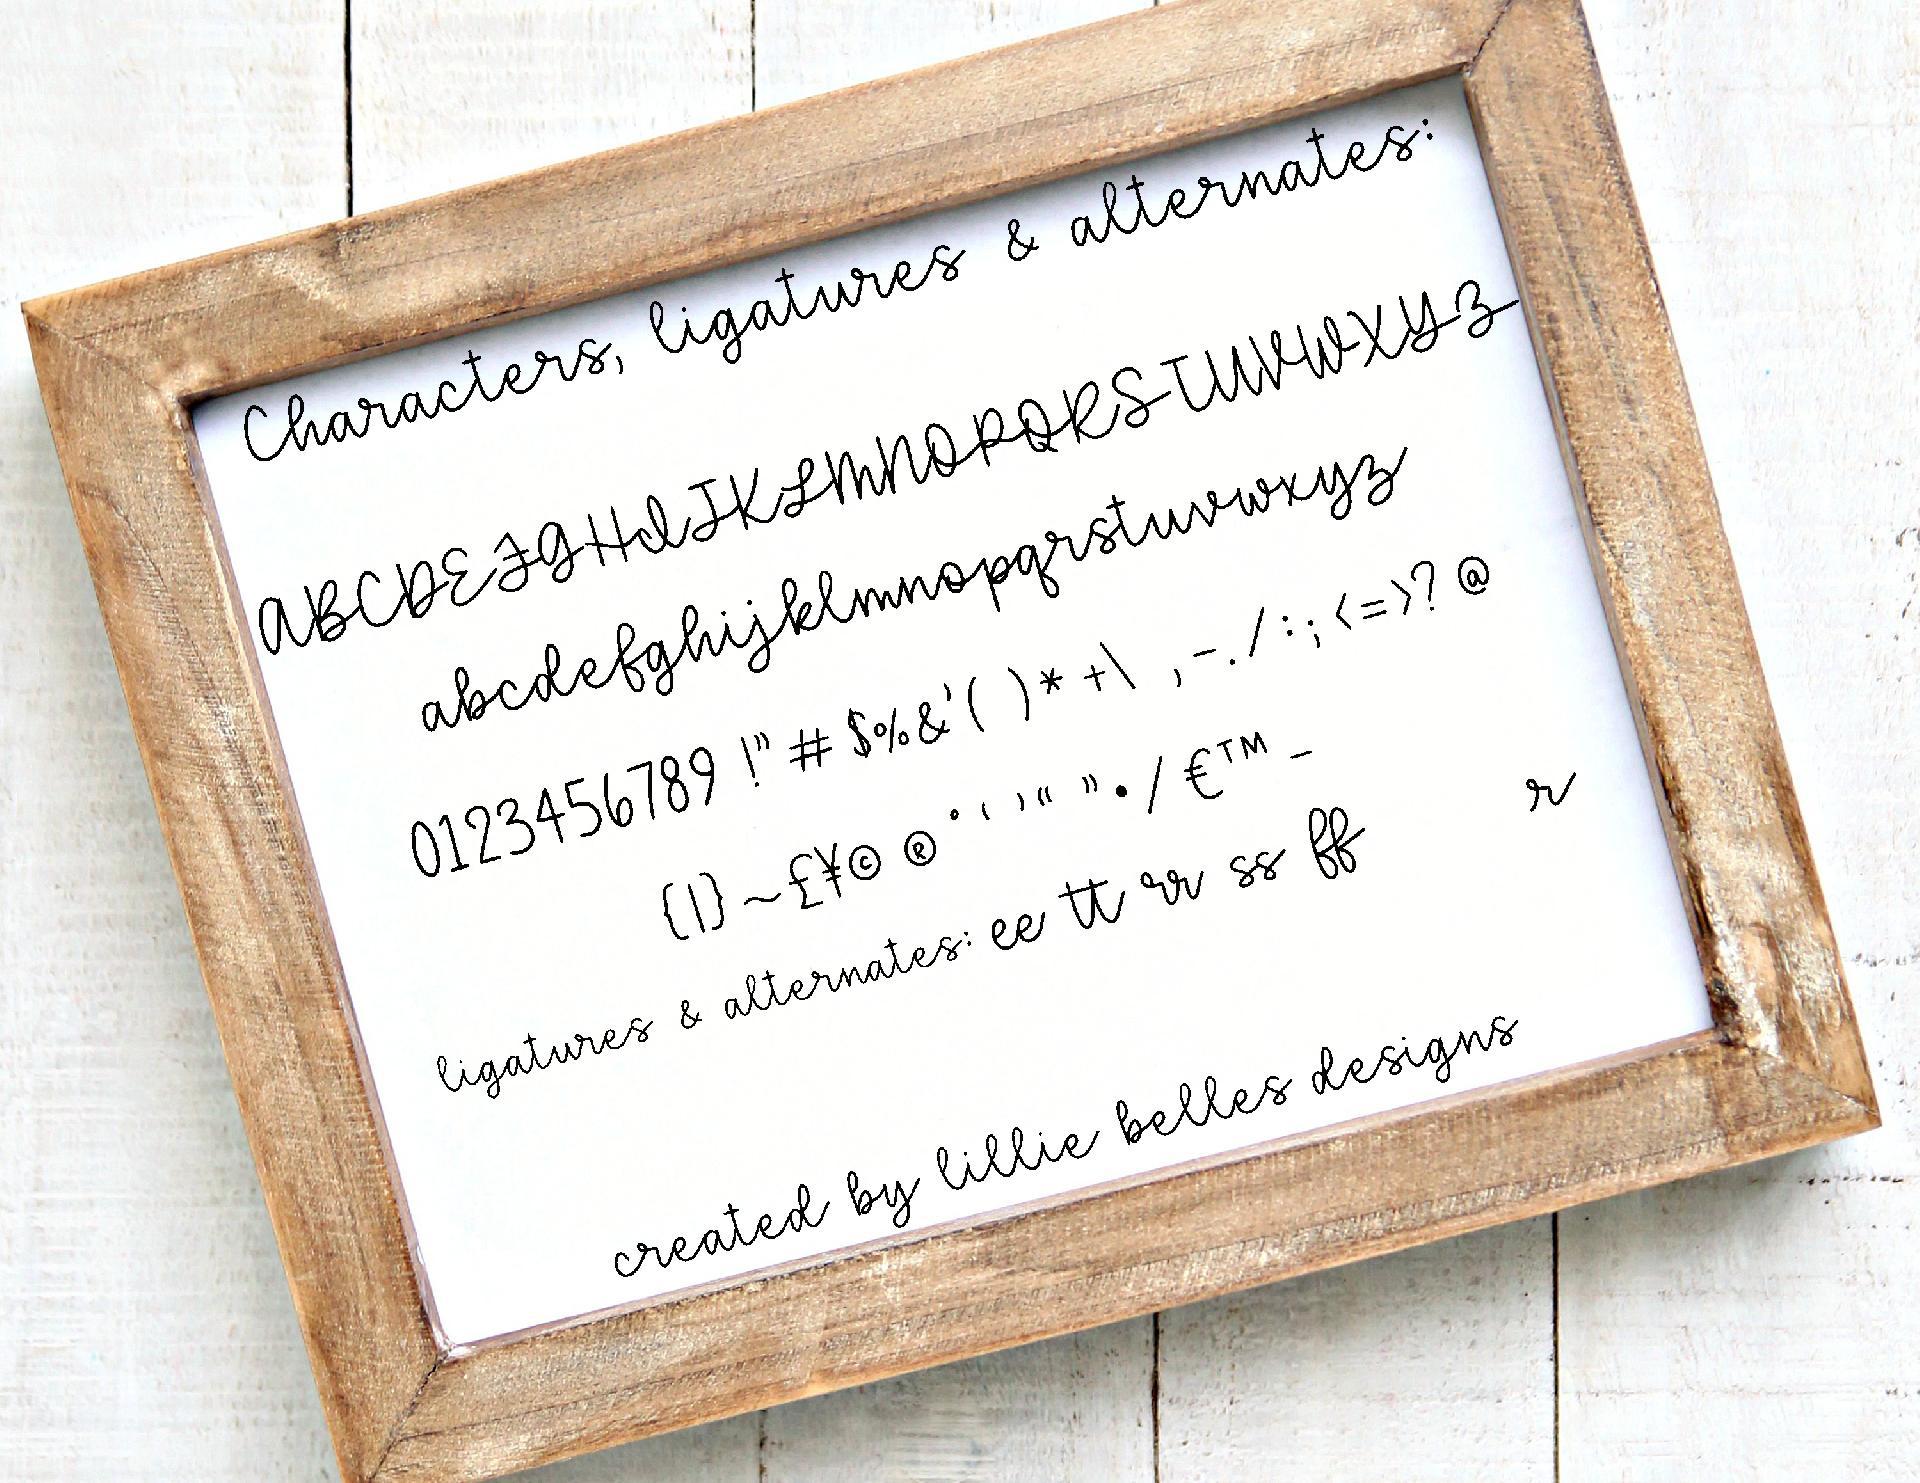 Characters, ligatures & alternates:
ABCDEFGHIJKLMNOPQRSTUVWXYZ
abcdefghijklmnopqrstuvwxyz
0123456789 !" # $%&'( )* +\ ,-./:;<=>? @
{|}~£¥© ® ° ‘ ’ “ ” • / €™ –
ligatures & alternates: ee tt rr ss ff r
created by lillie belles designs